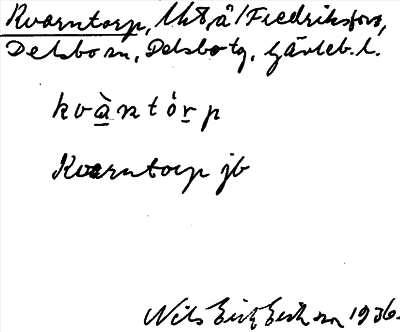 Kvarntorp, lht, å/Fredriksfors,
Delsbo sn, Delsbo tg, Gävleb. l.
kvàntórp
Kvarntorp jb
Nils Erik Eriksson 1936.